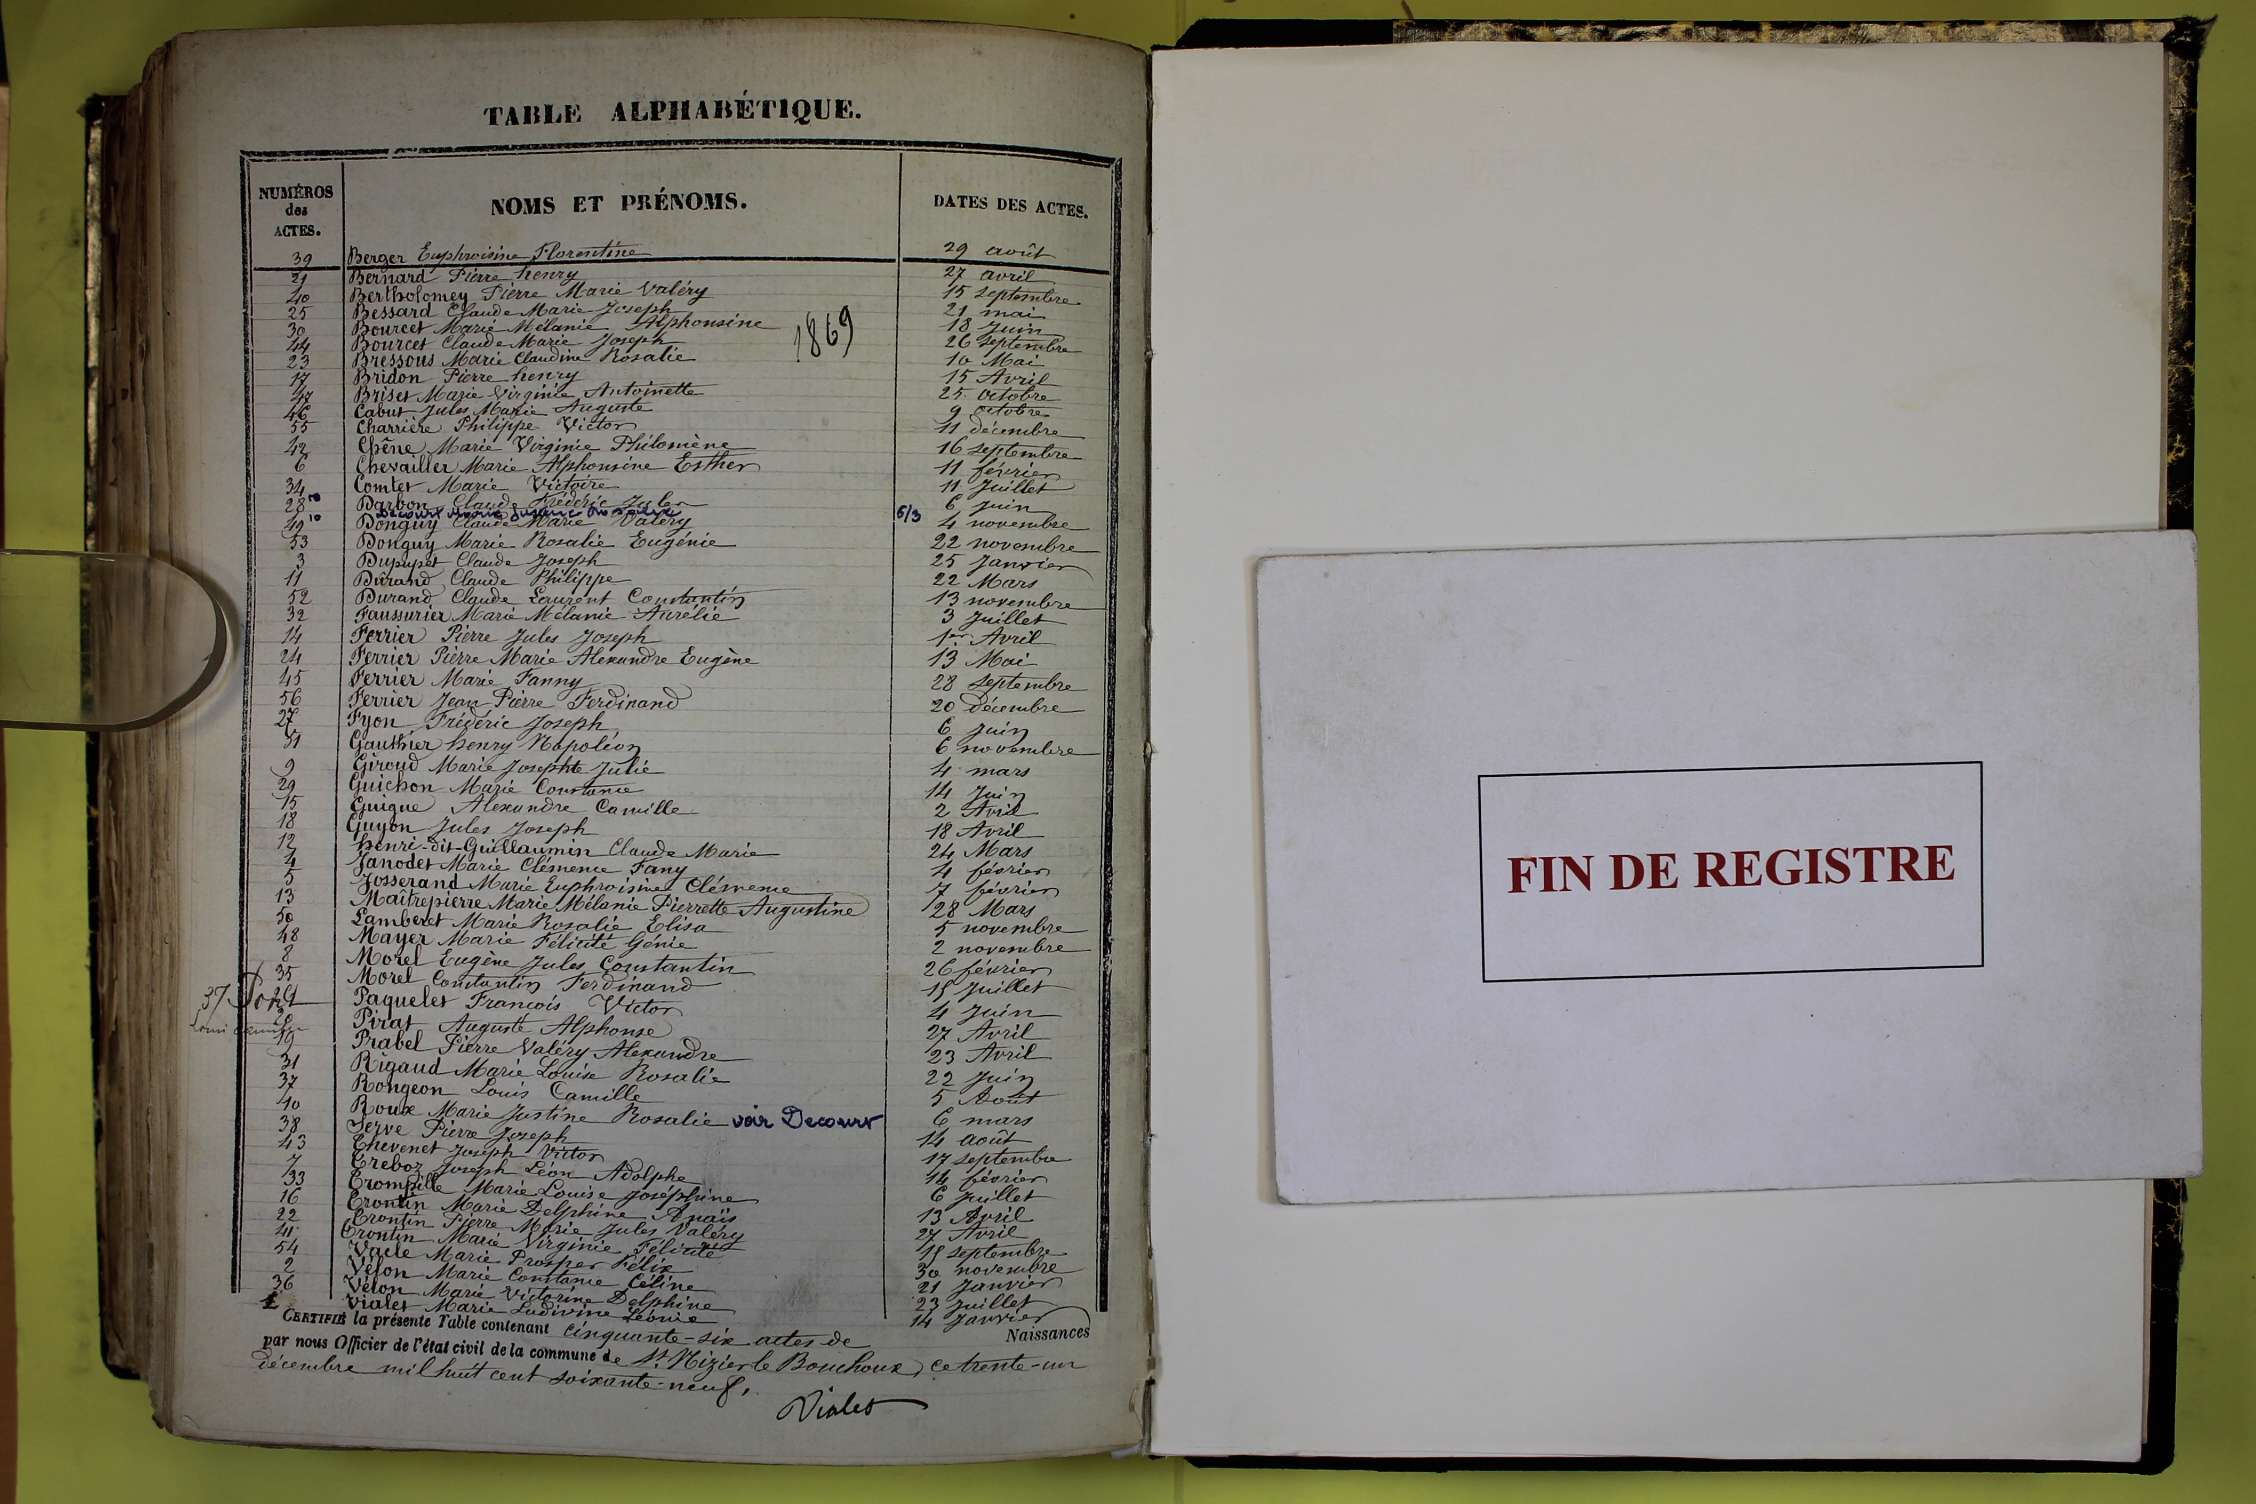 TABLE ALPHABÉTIQUE.
NUMÉROS des ACTES. NOMS ET PRÉNOMS. DATES DES ACTES.
1869
39 Berger Euphroisine Florentine 29 août
21 Bernard Pierre henry 27 avril
40 Bertholomey Pierre Marie Valéry 15 septembre
25 Bessard Claude Marie Joseph 21 mai
30 Bourcet Marie Mélanie Alphonsine 18 Juin
44 Bourcet Claude Marie Joseph 26 septembre
23 Bressous Marie Claudine Rosalie 10 Mai
17 Bridon Pierre henry 15 Avril
47 Briset Marie Virginie Antoinette 25 octobre
46 Cabut Jules Marie Auguste 9 octobre
55 Charrière Philippe Victor 11 décembre
42 Chêne Marie Virginie Philomène 16 septembre
6 Chevailler Marie Alphonsine Esther 11 février
34 Comtet Marie Victoire 11 Juillet
28 Darbon Claude Frédéric Jules 6 Juin
10 Decourt Marie Justine Rosalie 6/3
49 Donguy Claude Marie Valéry 4 novembre
53 Donguy Marie Rosalie Eugénie 22 novembre
3 Dupupet Claude Joseph 25 Janvier
11 Durand Claude Philippe 22 Mars
52 Durand Claude Laurent Constantin 13 novembre
32 Faussurier Marie Mélanie Aurélie 3 Juillet
14 Ferrier Pierre Jules Joseph 1er Avril
24 Ferrier Pierre Marie Alexandre Eugène 13 Mai
45 Ferrier Marie Fanny 28 septembre
56 Ferrier Jean Pierre Ferdinand 20 décembre
27 Fyon Frédéric Joseph 6 Juin
51 Gauthier henry Napoléon 6 novembre
9 Giroud Marie Josephte Julie 4 mars
29 Guichon Marie Constance 14 Juin
15 Guigue Alexandre Camille 2 Avril
18 Guyon Jules Joseph 18 Avril
12 henri-dit-Guillaumin Claude Marie 24 Mars
4 Janodet Marie Clémence Fany 4 février
5 Josserand Marie Euphroisine Clémence 7 février
13 Maîtrepierre Marie Mélanie Pierrette Augustine 28 Mars
50 Lamberet Marie Rosalie Elisa 5 novembre
48 Mayer Marie Félicité Génie 2 novembre
8 Morel Eugène Jules Constantin 26 février
35 Morel Constantin Ferdinand 15 Juillet
37 Paquelet François Victor 4 Juin
Pirat Auguste Alphonse 27 Avril
19 Prabel Pierre Valéry Alexandre 23 Avril
31 Rigaud Marie Louise Rosalie 22 Juin
37 Rongeon Louis Camille 5 Août
10 Roux Marie Justine Rosalie voir Decourt 6 mars
38 Serve Pierre Joseph 14 août
43 Thevenet Joseph Victor 17 septembre
7 Treboz Joseph Léon Adolphe 14 février
33 Trompille Marie Louise Joséphine 6 Juillet
16 Trontin Marie Delphine Anaïs 13 Avril
22 Trontin Pierre Marie Jules Valéry 27 Avril
41 Trontin Marie Virginie Félicité 15 septembre
54 Vacle Marie Prosper Félix 30 novembre
2 Vélon Marie Constance Céline 21 Janvier
36 Vélon Marie Victorine Delphine 23 Juillet
1 Vialet Marie Ludivine Léonie 14 Janvier
CERTIFIÉ la présente Table contenant cinquante-six actes de Naissances
par nous Officier de l'état civil de la commune de St. Nizier le Bouchoux, ce trente-un
décembre mil huit cent soixante-neuf.
Vialet
FIN DE REGISTRE